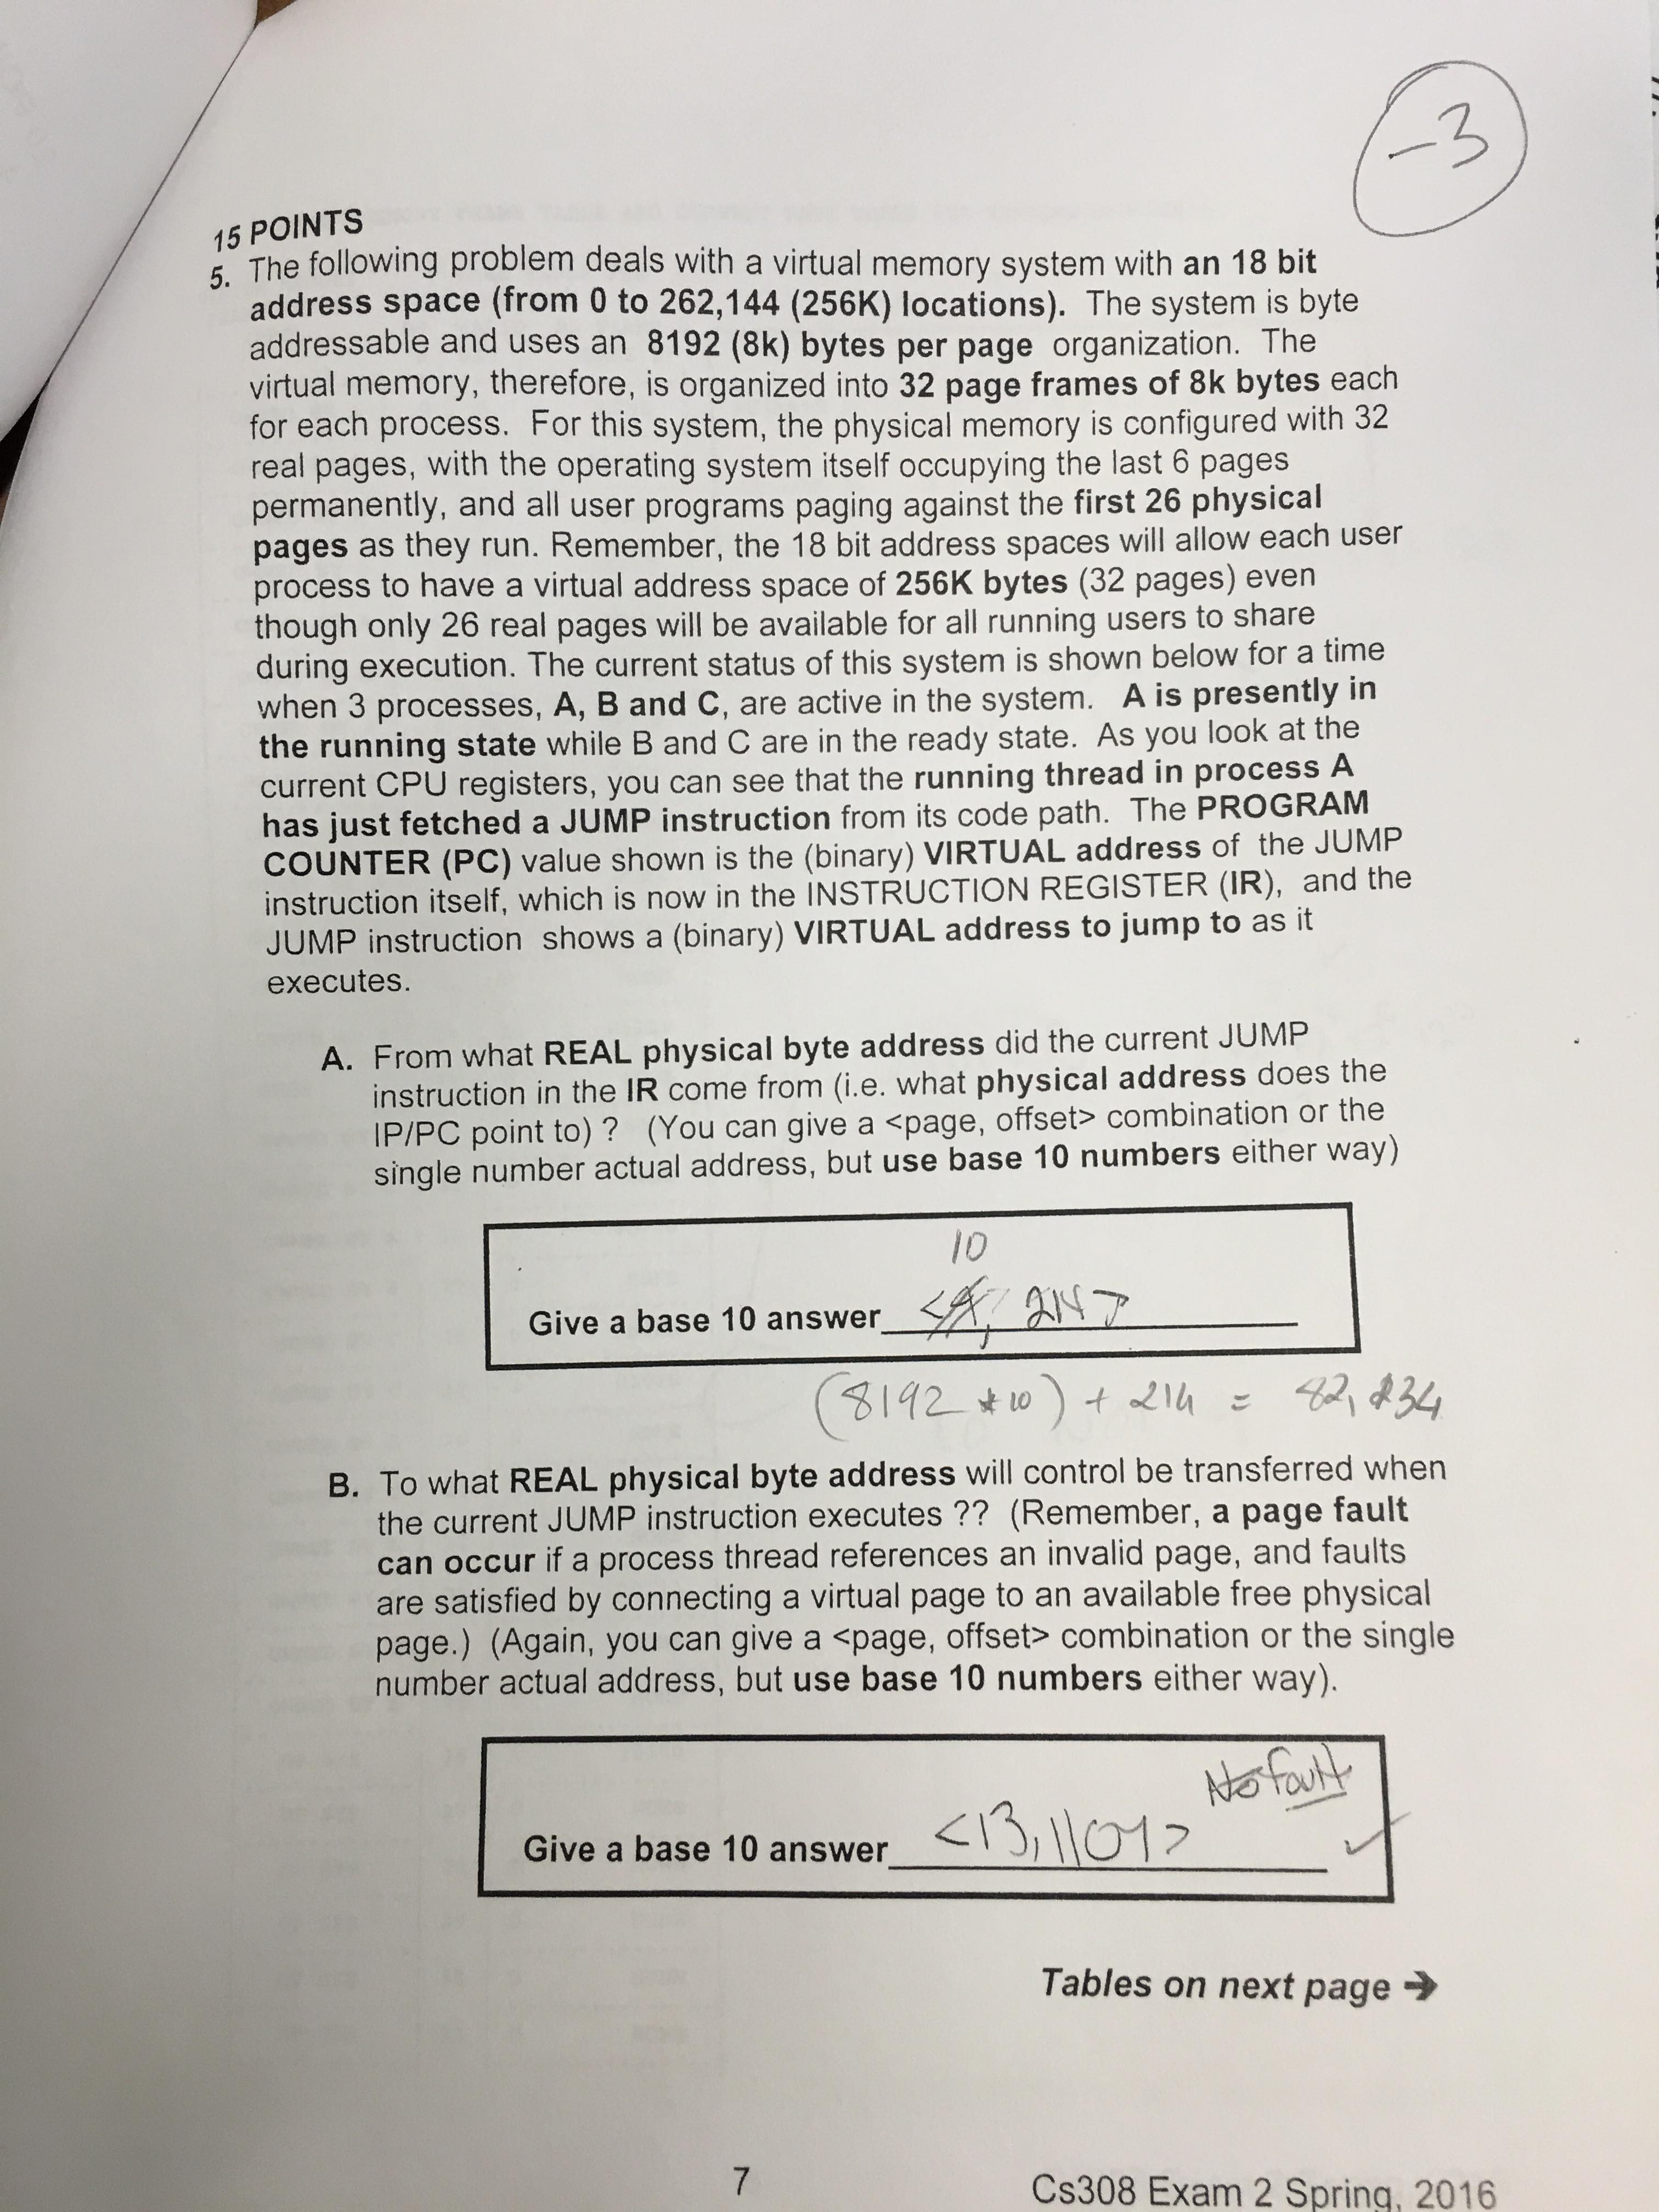 -3
15 POINTS
5. The following problem deals with a virtual memory system with an 18 bit
address space (from 0 to 262,144 (256K) locations). The system is byte
addressable and uses an 8192 (8k) bytes per page organization. The
virtual memory, therefore, is organized into 32 page frames of 8k bytes each
for each process. For this system, the physical memory is configured with 32
real pages, with the operating system itself occupying the last 6 pages
permanently, and all user programs paging against the first 26 physical
pages as they run. Remember, the 18 bit address spaces will allow each user
process to have a virtual address space of 256K bytes (32 pages) even
though only 26 real pages will be available for all running users to share
during execution. The current status of this system is shown below for a time
when 3 processes, A, B and C, are active in the system. A is presently in
the running state while B and C are in the ready state. As you look at the
current CPU registers, you can see that the running thread in process A
has just fetched a JUMP instruction from its code path. The PROGRAM
COUNTER (PC) value shown is the (binary) VIRTUAL address of the JUMP
instruction itself, which is now in the INSTRUCTION REGISTER (IR), and the
JUMP instruction shows a (binary) VIRTUAL address to jump to as it
executes.
A. From what REAL physical byte address did the current JUMP
instruction in the IR come from (i.e. what physical address does the
IP/PC point to) ? (You can give a <page, offset> combination or the
single number actual address, but use base 10 numbers either way)
10
Give a base 10 answer < , 214>
(8192 * 10) + 214 = 82,134
B. To what REAL physical byte address will control be transferred when
the current JUMP instruction executes ?? (Remember, a page fault
can occur if a process thread references an invalid page, and faults
are satisfied by connecting a virtual page to an available free physical
page.) (Again, you can give a <page, offset> combination or the single
number actual address, but use base 10 numbers either way).
No fault
Give a base 10 answer <13,1107>
Tables on next page →
7
Cs308 Exam 2 Spring, 2016